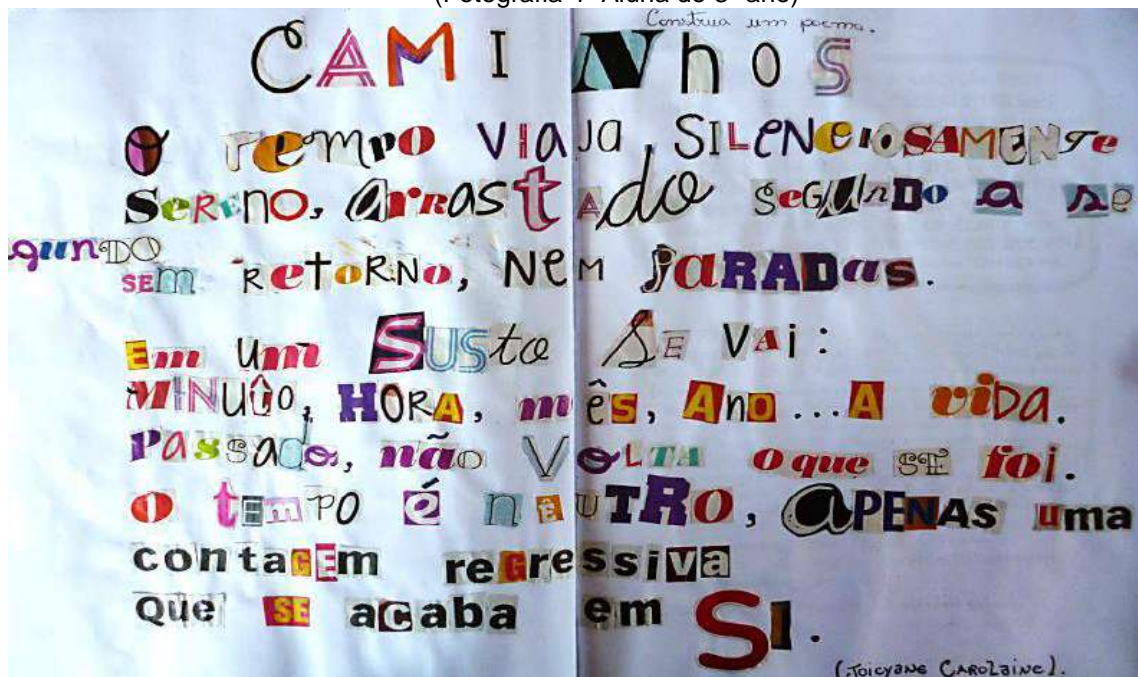 Construa um poema.
CAMINhOS
O TemPO VIAJa, SILeNCIOSAMENTe
SeReNO, ArRAStAdo SeGUnDo a Se
gunDO
SEm RetoRNo, NeM PaRADas.
Em Um SUSto SE VAi:
MINUtO, HORA, mês, AnO...A viDa.
PassAdo, não VOLTA o que SE foi.
O tEmPO é nÊUTRO, APENAS uma
contaGEm reGressiva
Que SE acaba em SI.
(Joicyane CAROLaine).